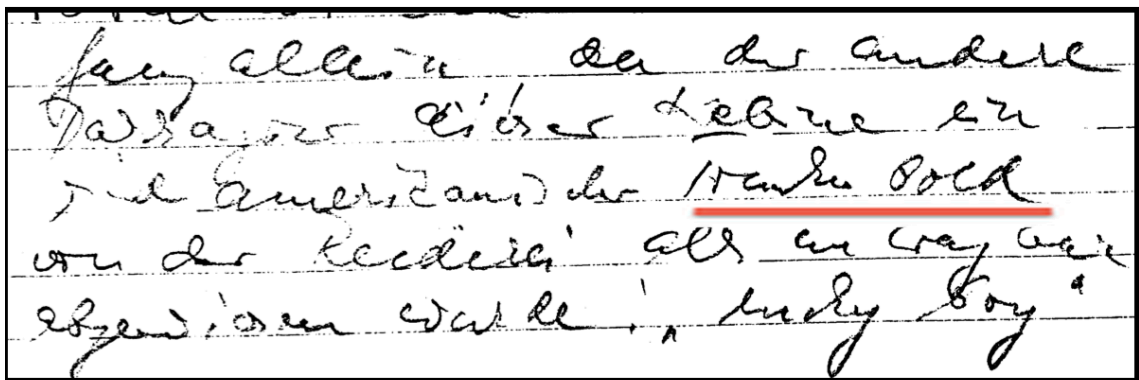 ganz allein, da der andere
Passagier dieser Kabine ein
südamerikanischer Trunkenbold
von der Reederei als untragbar
abgewiesen wurde; „lucky boy“